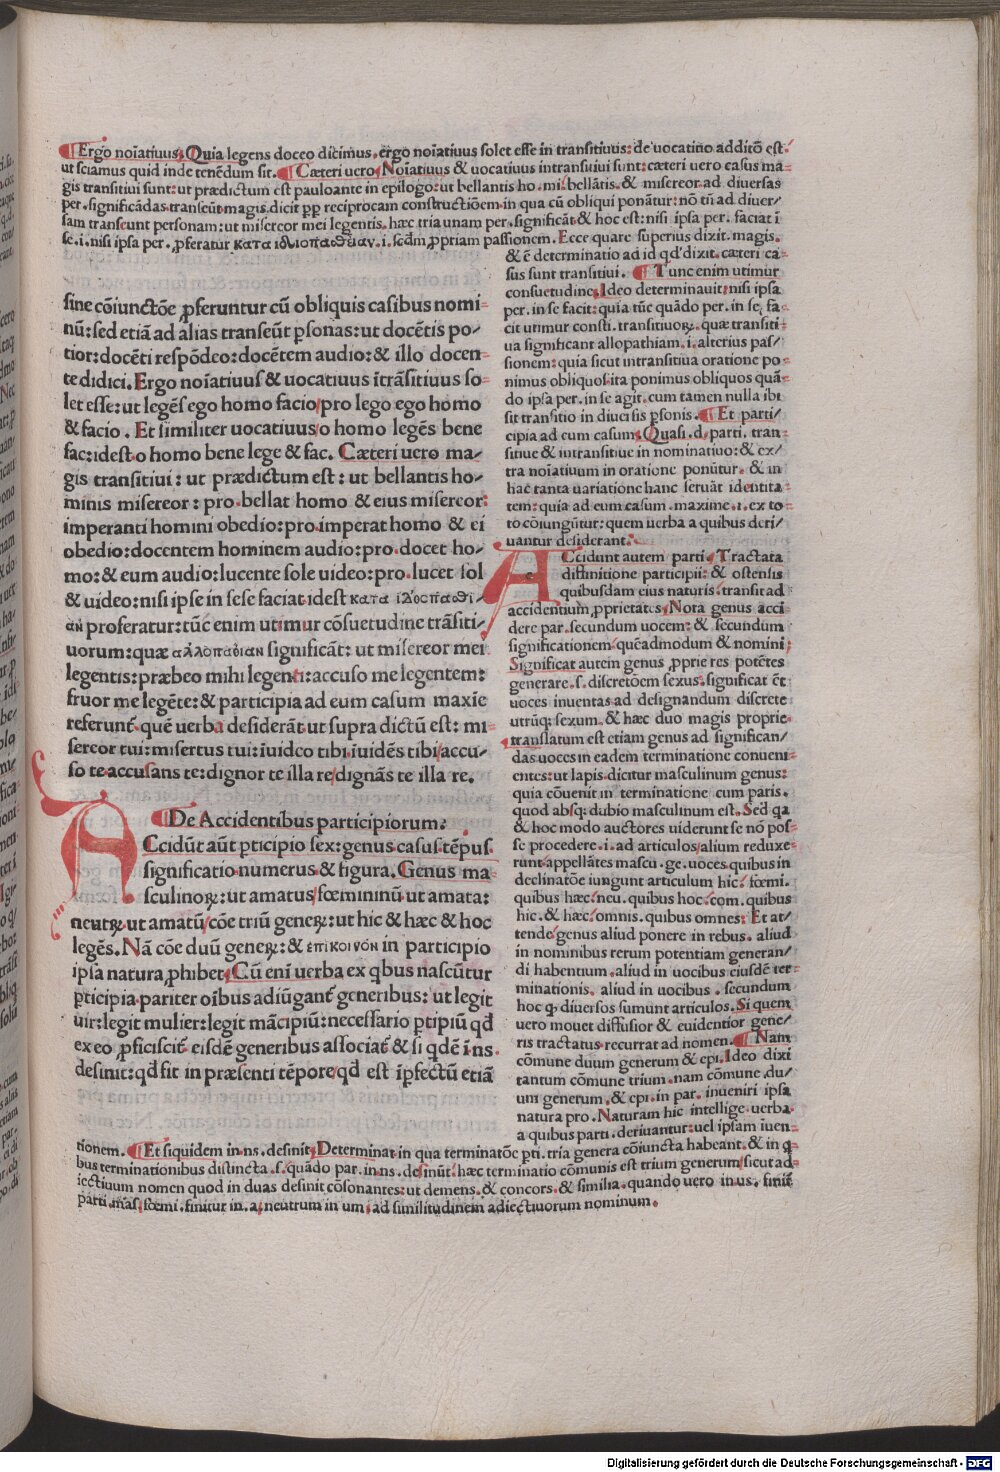 ¶ Ergo noīatiuus. Quia legens doceo dicimus. ergo noīatiuus solet esse in transitiuus: de uocatiuo additō est.
ut sciamus quid inde tenēdum sit. ¶ Cæteri uero. Noīatiuus & uocatiuus intransitiui sunt: cæteri uero casus ma-
gis transitiui sunt: ut prædictum est pauloante in epilogo: ut bellantis ho. mi. bellātis. & misereor ad diuersas
per. significādas transeūt magis. dicit pp reciprocam constructiōem. in qua cū obliqui ponātur: nō tñ ad diuer/
sam transeunt personam: ut misereor mei legentis. hæc tria unam per. significāt & hoc est: nisi ipsa per. faciat ī
se. i. nisi ipsa per. proferatur κατα ιδιοπαθειαν. i. secdm propriam passionem. Ecce quare superius dixit. magis.
& ē determinatio ad id qd' dixit. cæteri ca-
sus sunt transitiui. ¶ Tunc enim utimur
consuetudine. Ideo determinauit: nisi ipsa
per. in se facit: quia tūc quādo per. in se fa-
cit utimur consti. transitiuoꝝ. quæ transiti-
ua significant allopathiam. i. alterius pas/
sionem: quia sicut intransitiua oratione po-
nimus obliquos: ita ponimus obliquos quā-
do ipsa per. in se agit. cum tamen nulla ibi
sit transitio in diuersis personis. ¶ Et parti-
cipia ad eum casum. Quasi. d. parti. tran-
sitiue & intransitiue in nominatiuo: & ex/
tra noīatiuum in oratione ponūtur. & in
hac tanta uariatione hanc seruāt identita-
tem: quia ad eum casum. maxime. i. ex to-
to cōiungūtur: quem uerba a quibus deri/
uantur desiderant.
sine cōiunctōe proferuntur cū obliquis casibus nomi-
nū: sed etiā ad alias transeūt psonas: ut docētis po/
tior: docēti respōdeo: docētem audio: & illo docen-
te didici. Ergo noīatiuus & uocatiuus ītrāsitiuus so-
let esse: ut legēs ego homo facio/ pro lego ego homo
& facio. Et similiter uocatiuus/ o homo legēs bene
fac: idest o homo bene lege & fac. Cæteri uero ma/
gis transitiui: ut prædictum est: ut bellantis ho/
minis misereor: pro bellat homo & eius misereor:
imperanti homini obedio: pro imperat homo & ei
obedio: docentem hominem audio: pro docet ho/
mo: & eum audio: lucente sole uideo: pro lucet sol
& uideo: nisi ipse in sese faciat idest κατα ιλοσπαθι/
αν proferatur: tūc enim utimur cōsuetudine trāsiti/
uorum: quæ αλλοπαθιαν significāt: ut misereor mei
legentis: præbeo mihi legenti: accuso me legentem:
fruor me legēte: & participia ad eum casum maxīe
referunt: quē uerba desiderāt ut supra dictū est: mi-
sereor tui: misertus tui: īuideo tibi. īuidēs tibi/ accu/
so te accusans te: dignor te illa re/ dignās te illa re.
¶ De Accidentibus participiorum:
Accidūt aūt pticipio sex: genus casus tēpus
significatio numerus & figura. Genus ma-
sculinoꝝ: ut amatus/ fœmininū ut amata:
neutꝝ ut amatū/ cōe triū generꝝ: ut hic & hæc & hoc
legēs. Nā cōe duū generꝝ: & επικοινον in participio
ipsa natura prohibet. Cū enī uerba ex qbus nascūtur
pticipia pariter oībus adiūgant generibus: ut legit
uir: legit mulier: legit mācipiū: necessario ptipiū qd
ex eo proficiscit eisdē generibus associat & si qdē ī ns.
desinit: qd fit in præsenti tēpore/ qd est īpfectū etiā
Accidunt autem parti. Tractata
diffinitione participii: & ostensis
quibusdam eius naturis. transit ad
accidentium proprietates. Nota genus acci-
dere par. secundum uocem: & secundum
significationem: quēadmodum & nomini:
Significat autem genus proprie res potētes
generare. s. discretōem sexus: significat ēt
uoces inuentas ad designandum discrete
utrūq; sexum. & hæc duo magis proprie.
translatum est etiam genus ad significan/
das uoces in eadem terminatione conueni-
entes: ut lapis dicitur masculinum genus:
quia cōuenit in terminatione cum paris.
quod absq; dubio masculinum est. Sed qa
& hoc modo auctores uiderunt se nō pos/
se procedere. i. ad articulos/ alium reduxe-
runt: appellātes mascu. ge. uoces quibus in
declinatōe iungunt articulum hic: fœmi.
quibus hæc: neu. quibus hoc: com. quibus
hic. & hæc: omnis. quibus omnes: Et at/
tende genus aliud ponere in rebus. aliud
in nominibus rerum potentiam generan/
di habentium. aliud in uocibus eiusdē ter-
minationis. aliud in uocibus. secundum
hoc q diuersos sumunt articulos. Si quem
uero mouet diffusior & euidentior gene/
ris tractatus recurrat ad nomen. ¶ Nam
cōmune duum generum & epi. Ideo dixi
tantum cōmune trium. nam cōmune du/
um generum. & epi. in par. inueniri ipsa
natura pro. Naturam hic intellige uerba
a quibus parti. deriuantur: uel ipsam iuen-
tionem. ¶ Et siquidem in. ns. desinit. Determinat in qua terminatōe pti. tria genera cōiuncta habeant. & in q-
bus terminationibus distincta. s. quādo par. in. ns. desinūt: hæc terminatio cōmunis est trium generum/ sicut ad-
iectiuum nomen quod in duas desinit cōsonantes: ut demens. & concors. & similia. quando uero in us. finit
parti. mas. fœmi. finitur in. a. neutrum in um. ad similitudinem adiectiuorum nominum.
Digitalisierung gefördert durch die Deutsche Forschungsgemeinschaft - DFG